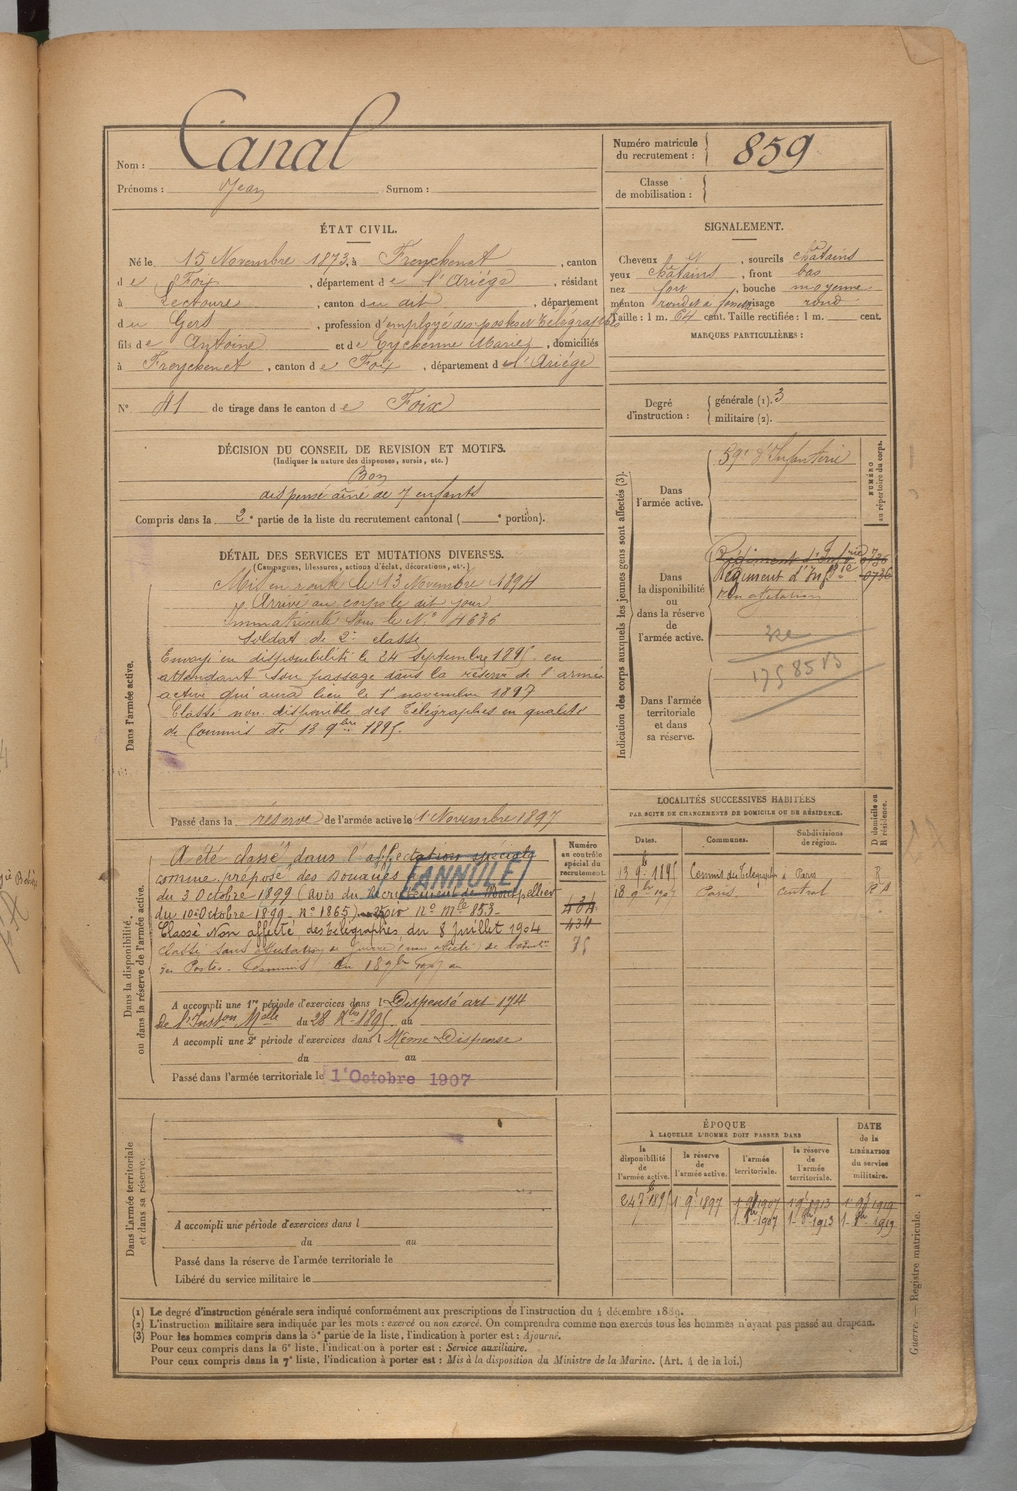 Nom : Canal
Prénoms : Jean Surnom :
Numéro matricule du recrutement : 859
Classe de mobilisation :
ÉTAT CIVIL.
Né le 15 Novembre 1873, à Freychenet, canton
de Foix, département de l'Ariége, résidant
à Lectoure, canton du dit, département
du Gers, profession d'employé des postes et télégraphes
fils de Antoine et de Eychenne Marie, domiciliés
à Freychenet, canton de Foix, département de l'Ariége
N° 41 de tirage dans le canton de Foix
SIGNALEMENT.
Cheveux et, sourcils châtains
yeux châtains, front bas
nez fort, bouche moyenne
menton rond et à, visage rond
Taille : 1 m. 64 cent. Taille rectifiée : 1 m. cent.
MARQUES PARTICULIÈRES :
Degré d'instruction :
générale (1). 3
militaire (2).
DÉCISION DU CONSEIL DE REVISION ET MOTIFS.
(Indiquer la nature des dispenses, sursis, etc.)
Bon
dispensé aîné de 7 enfants
Compris dans la 2e partie de la liste du recrutement cantonal ( e portion).
DÉTAIL DES SERVICES ET MUTATIONS DIVERSES.
(Campagnes, blessures, actions d'éclat, décorations, etc.)
Dans l'armée active.
Mis en route le 13 Novembre 1894
Arrivé au corps le dit jour
Immatriculé sous le N° 4636
Soldat de 2e classe
Envoyé en disponibilité le 24 Septembre 1895 en
attendant son passage dans la réserve de l'armée
active qui aura lieu le 1er novembre 1897
Classé non disponible des Télégraphes en qualité
de Commis de 13 9bre 1895.
Passé dans la réserve de l'armée active le 1 Novembre 1897
Indication des corps auxquels les jeunes gens sont affectés (3).
NUMÉRO au répertoire du corps.
Dans l'armée active.
59e d'Infanterie
Dans la disponibilité ou dans la réserve de l'armée active.
Régiment d'Infrie
Régiment d'Infrie 0736
Non affectation
Dans l'armée territoriale et dans sa réserve.
Dans la disponibilité, ou dans la réserve de l'armée active.
Numéro au contrôle spécial du recrutement.
A été classé dans l'affectation spéciale
comme préposé des Douanes
ANNULÉ
du 3 Octobre 1899 (Avis du Recrutement de Montpellier
du 10 Octobre 1899 - N° 1865) n° mle 853-
Classé Non affecté des télégraphes du 8 Juillet 1904
434
434
75
A accompli une 1re période d'exercices dans l Dispensé art 174
de l'Inston Mlle du 28 Xbre 1895 au
A accompli une 2e période d'exercices dans l Même Dispense
du au
Passé dans l'armée territoriale le 1er Octobre 1907
LOCALITÉS SUCCESSIVES HABITÉES
PAR SUITE DE CHANGEMENTS DE DOMICILE OU DE RÉSIDENCE.
Dates. Communes. Subdivisions de région. D domicile ou R résidence.
13 9e 1895 Commis du Télégraphe à Paris R
Paris Central
Dans l'armée territoriale et dans sa réserve.
A accompli une période d'exercices dans l
du au
Passé dans la réserve de l'armée territoriale le
Libéré du service militaire le
ÉPOQUE
À LAQUELLE L'HOMME DOIT PASSER DANS
DATE de la LIBÉRATION du service militaire.
la disponibilité de l'armée active. la réserve de l'armée active. l'armée territoriale. la réserve de l'armée territoriale.
24 7e 1895 1 9e 1897 1 9e 1907 1 9e 1913 1 9e 1919
1 8bre 1907 1 8bre 1913 1 8bre 1919
(1) Le degré d'instruction générale sera indiqué conformément aux prescriptions de l'instruction du 4 décembre 1889.
(2) L'instruction militaire sera indiquée par les mots : exercé ou non exercé. On comprendra comme non exercés tous les hommes n'ayant pas passé au drapeau.
(3) Pour les hommes compris dans la 5e partie de la liste, l'indication à porter est : Ajourné.
Pour ceux compris dans la 6e liste, l'indication à porter est : Service auxiliaire.
Pour ceux compris dans la 7e liste, l'indication à porter est : Mis à la disposition du Ministre de la Marine. (Art. 4 de la loi.)
Guerre. — Registre matricule. 1